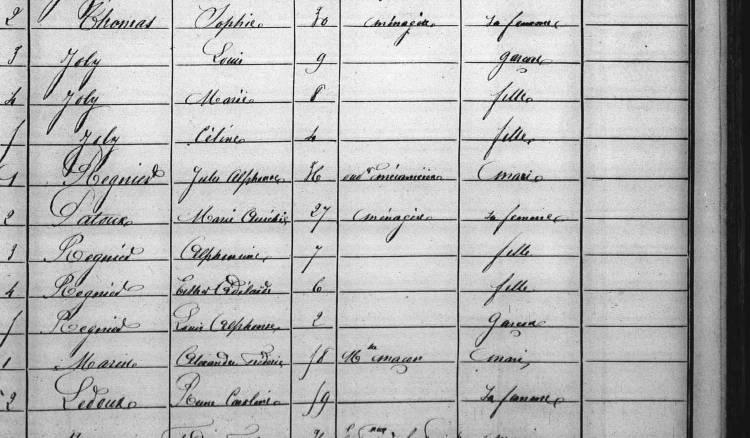 2 Thomas Sophie 30 ménagère La femme
3 Joly Louis 9 garçon
4 Joly Marie 8 fille
5 Joly Céline 4 fille
1 Regnier Jules Alphonse 36 ouvr mécanicien mari
2 Patoux Marie 27 ménagère La femme
3 Regnier Alphonsine 7 fille
4 Regnier Esther Adélaïde 6 fille
5 Regnier Louis Alphonse 2 garçon
1 Alexandre Frédéric 58 maçon mari
2 Ledoux Reine Caroline 59 La femme